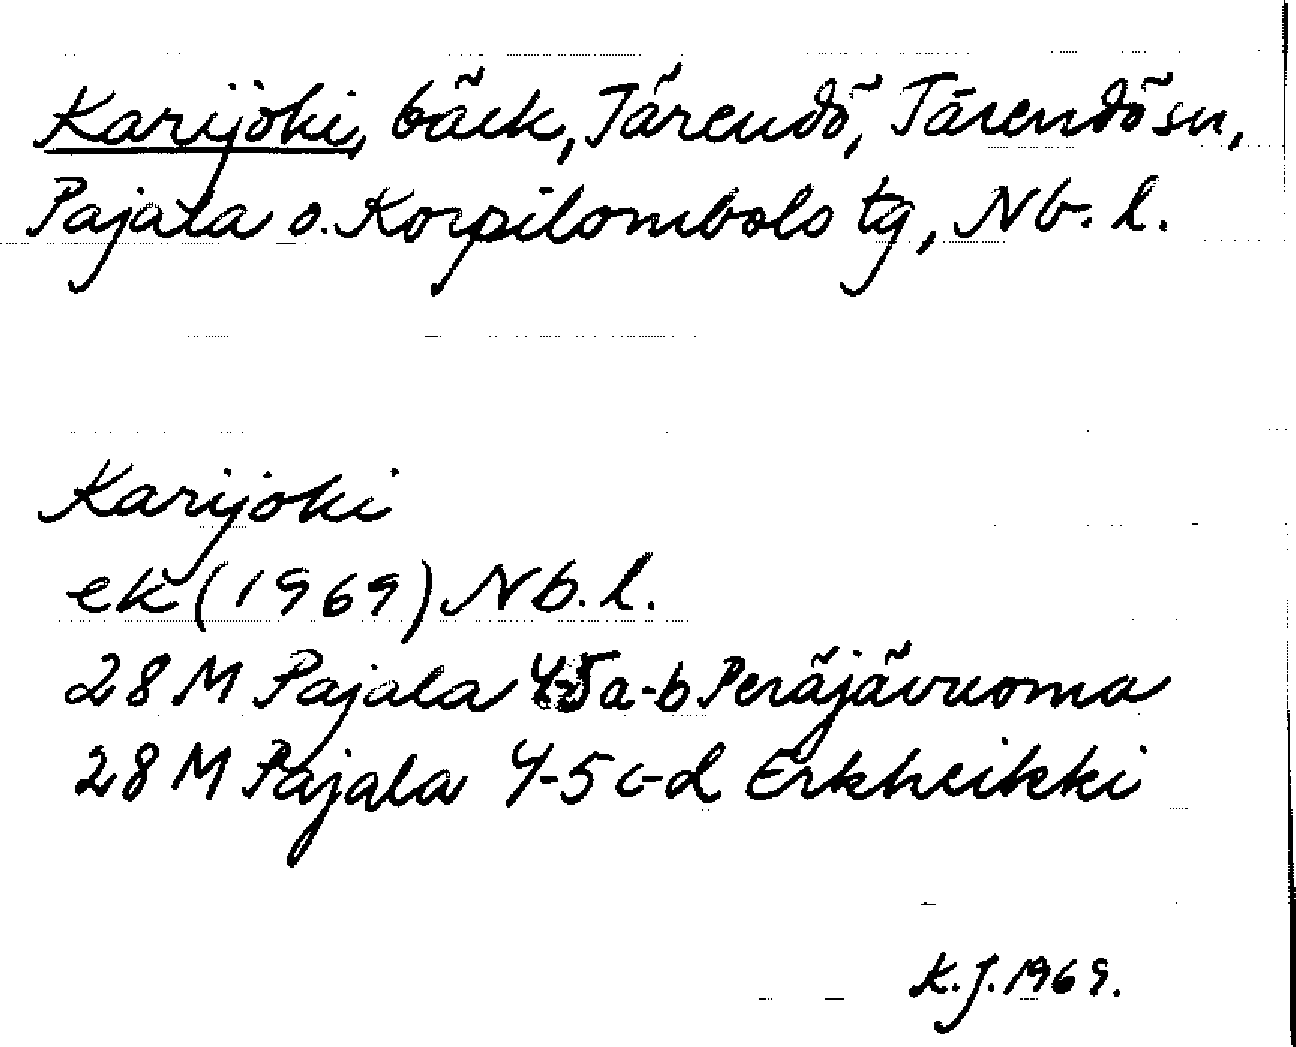 Karijoki, bäck, Tärendö, Tärendö sn,
Pajala o. Korpilombolo tg, Nb. l.
Karijoki
ek (1969) Nb. l.
28 M Pajala 4-5 a-b Peräjävuoma
28 M Pajala 4-5 c-d Erkheikki
K. J. 1969.